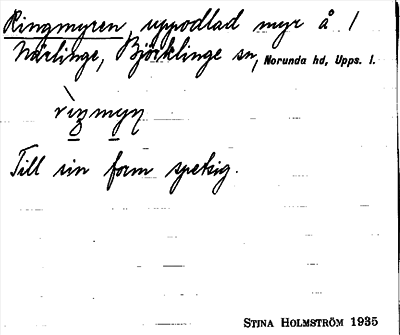 Ringmyren, uppodlad myr å 1
Närlinge, Björklinge sn, Norunda hd, Upps. l.
rìŋmyṇ
Till sin form spetsig.
STINA HOLMSTRÖM 1935